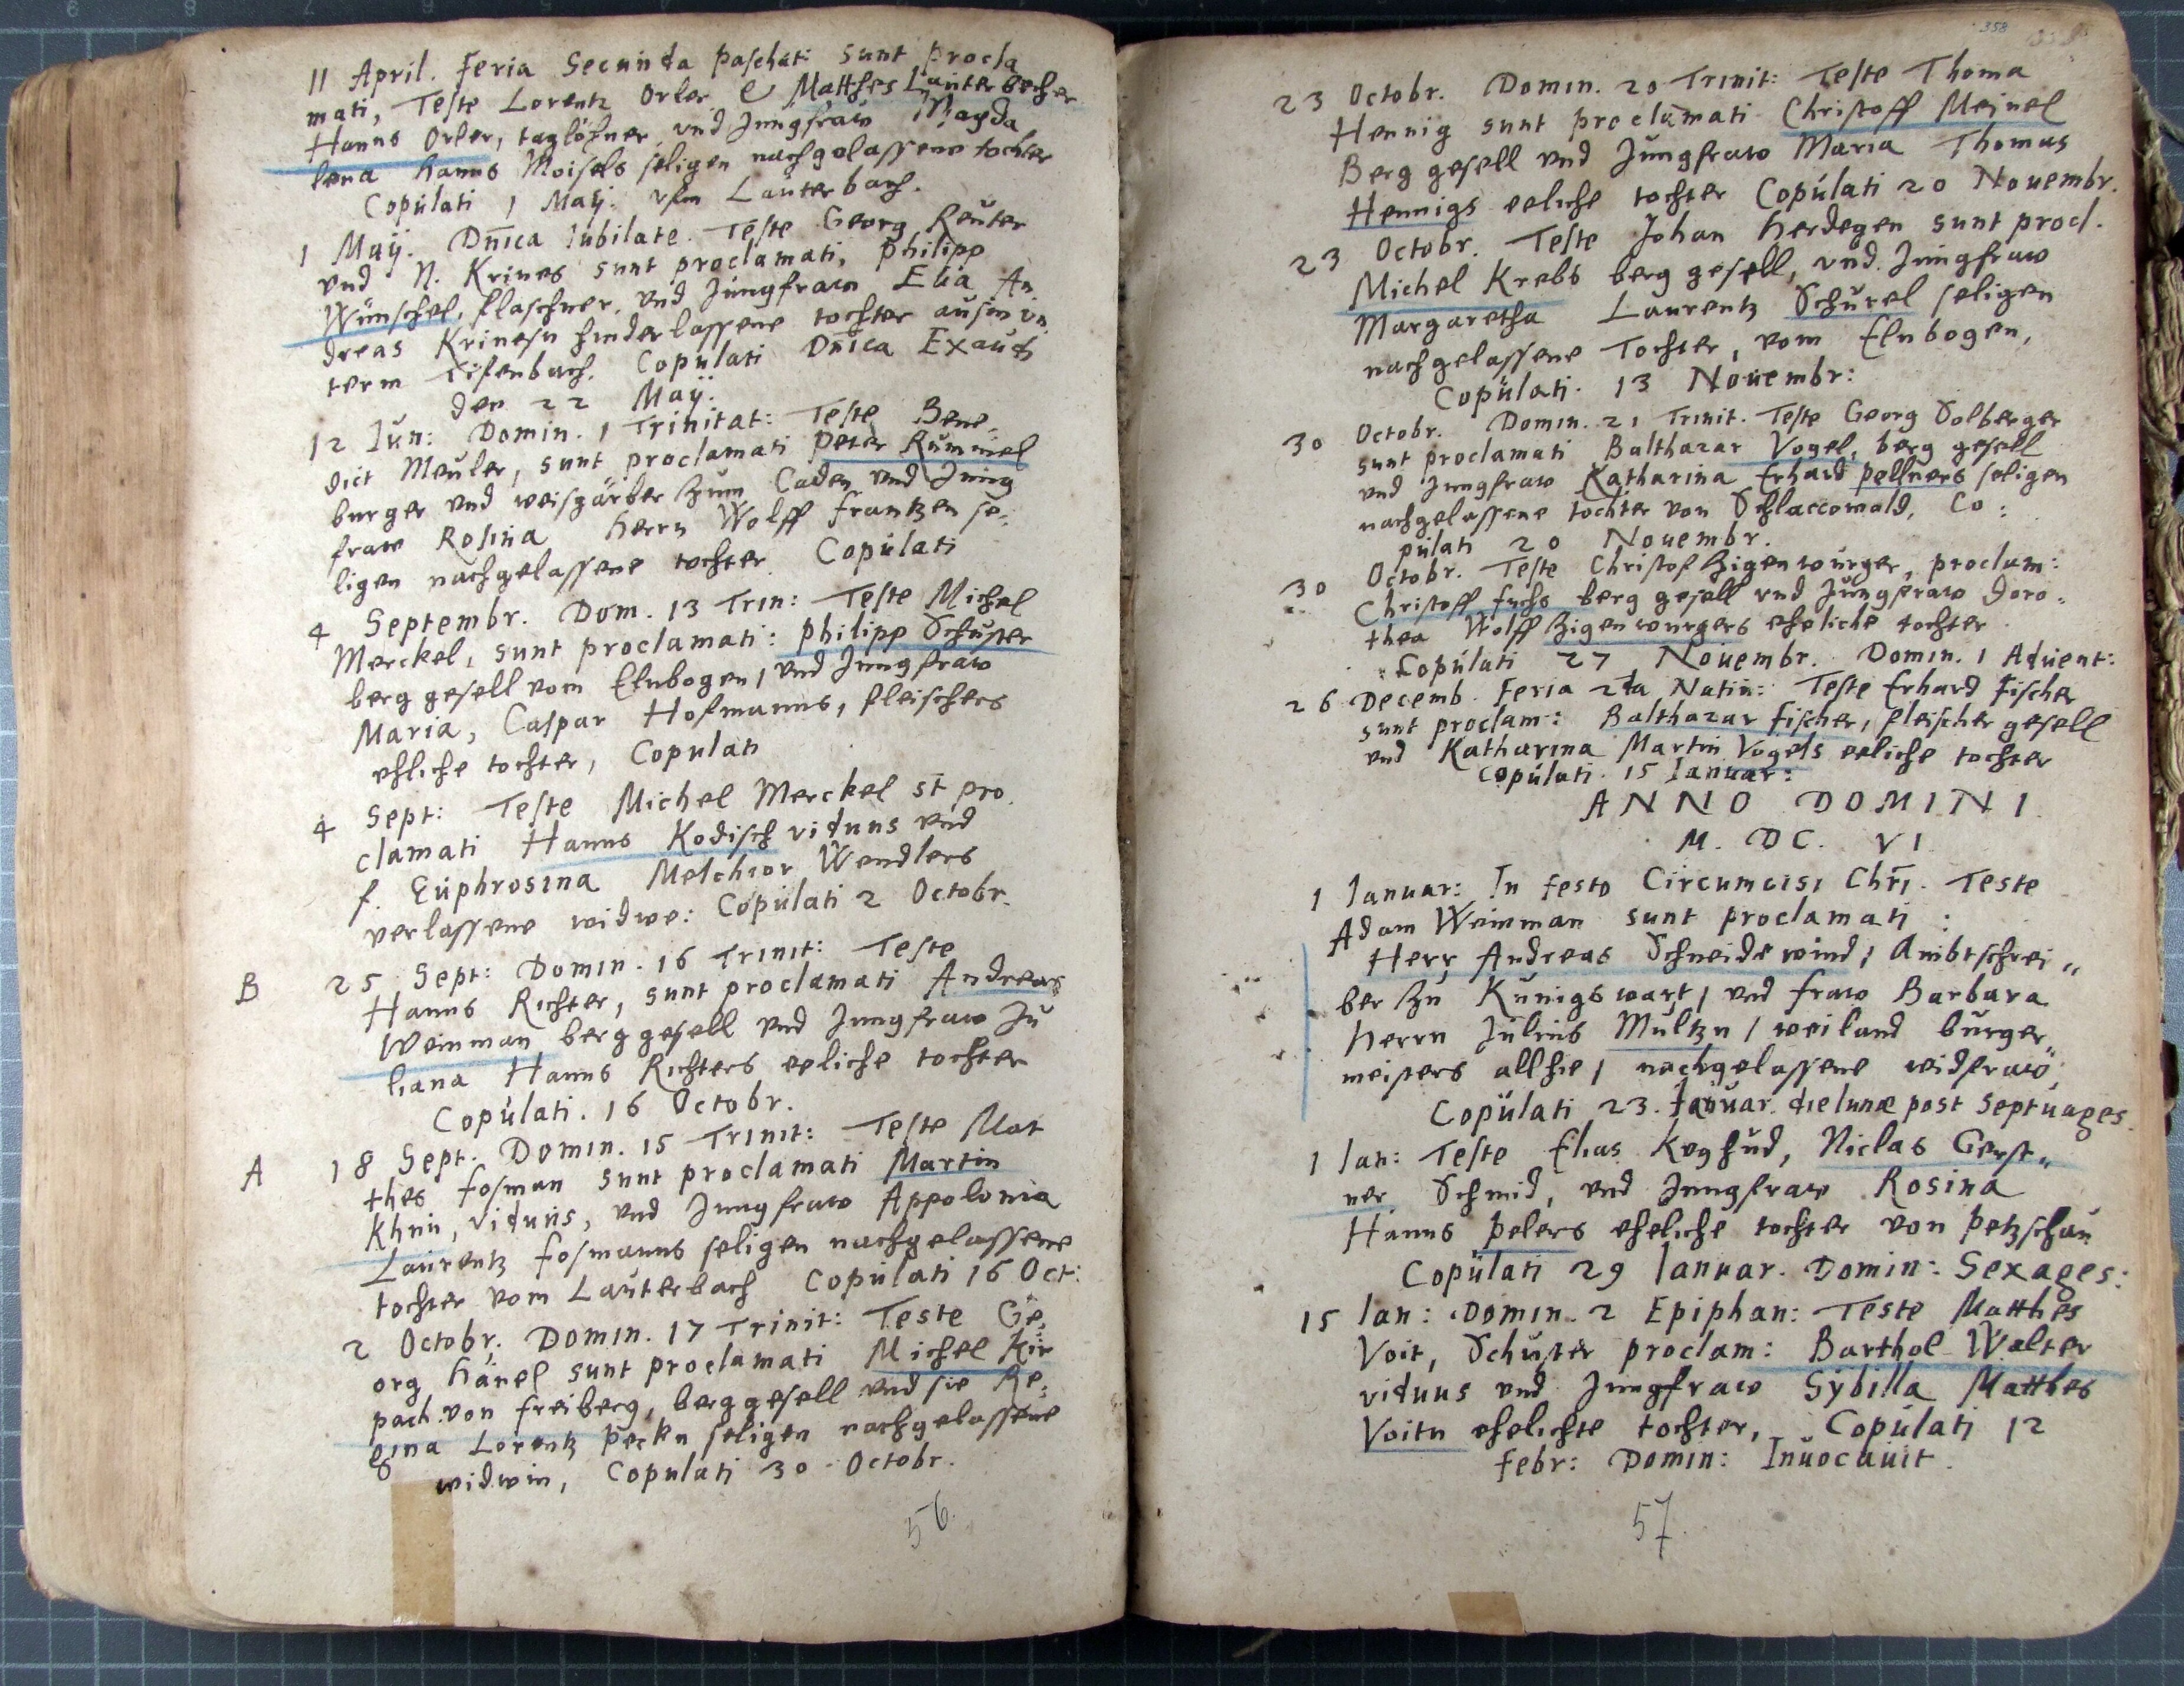 11 April. Feria Secunda Paschati sunt procla
mati, Teste Lorentz Orler & Matthes Lauterbecher
Hanns Orler, taglöhner vnd Jungfraw Magda
lena Hanns Moisels seligen nachgelassene tochter
Copulati 1 Maÿ. Lauterbach.
1 Maÿ. Dnica Iubilate. Teste Georg Reuter
vnd N. Krines sunt proclamati, Philipp
Wünschel, flaschner, vnd Jungfraw Eua An
dreas Krinesn hinderlassene tochter ausm vn
term Eisenbach. Copulati Dnica Exaudi
den 22 Maÿ.
12 Iun: Domin. 1 Trinitat: Teste Bene
dict Meuler, sunt proclamati Peter Rummel
burger vnd weisgärber zum Caden vnd Jung
fraw Rosina Herrn Wolff Frantzen se:
ligen nachgelassene tochter Copulati
4 Septembr. Dom. 13 Trin: Teste Michel
Merckel, sunt proclamati: Philipp Schuster
berg gesell vom Elnbogen, vnd Jungfraw
Maria, Caspar Hofmanns, fleischers
ehliche tochter, Copulati
4 Sept: Teste Michel Merckel st pro
clamati Hanns Kodisch viduus vnd
f. Euphrosina Melchior Wendlers
verlassene widwe: Copulati 2 Octobr.
B 25 Sept: Domin. 16 Trinit: Teste
Hanns Richter, sunt proclamati Andreas
Weinman berggesell vnd Jungfraw Ju
liana Hanns Richters eeliche tochter
Copulati. 16 Octobr.
A 18 Sept. Domin. 15 Trinit: Teste Mat
thes Fosman sunt proclamati Martin
Khnü, viduus, vnd Jungfraw Appolonia
Laurentz Fosmanns seligen nachgelassene
tochter vom Lauterbach Copulati 16 Oct:
2 Octobr. Domin. 17 Trinit: Teste Ge,
org Hänel sunt proclamati Michel Kir
pach von Freiberg, berggesell vnd sie Re:
gina Lorentz Peckn seligen nachgelassene
widwin, Copulati 30 Octobr.
56
358
23 Octobr. Domin. 20 Trinit: Teste Thoma
Hennig sunt proclamati Christoff Meinel
Berg gesell vnd Jungfraw Maria Thomas
Hennigs eeliche tochter Copulati 20 Nouembr.
23 Octobr. Teste Johan Herdegen sunt procl.
Michel Krebs berg gesell, vnd Jungfraw
Margaretha Laurentz Schurel seligen
nachgelassene Tochter, vom Elnbogen,
Copulati. 13 Nouembr:
30 Octobr. Domin. 21 Trinit. Teste Georg Solberger
sunt proclamati Balthazar Vogel, berg gesell
vnd Jungfraw Katharina Erhard Pellners seligen
nachgelassene tochter von Schlaccowald, Co:
pulati 20 Nouembr.
30 Octobr. Teste Christof Zigenwurger, proclam:
Christoff Fuchs berg gesell vnd Jungfraw Doro:
thea Wolff Zigenwurgers eheliche tochter
Copulati 27 Nouembr. Domin. 1 Aduent:
26 Decemb. Feria 2da Natiu: Teste Erhard Fischer
sunt proclam: Balthazar Fischer, fleischer gesell
vnd Katharina Martin Vogels eeliche tochter
Copulati. 15 Ianuar:
ANNO DOMINI
M. DC. VI
1 Ianuar: In festo Circumcisi Chri. Teste
Adam Weinman sunt proclamati :
Herr Andreas Schneidewind, Ambtschrei„
ber zu Kunigswart, vnd fraw Barbara
Herrn Julius Multzn, weiland burger
meisters allhie, nachgelassene widfraw,
Copulati 23. Januar. die lunæ post Septuages.
1 Ian: Teste Elias Kughud, Niclas Gerst„
ner, Schmid, vnd Jungfraw Rosina
Hanns Pelers eheliche tochter von Petzschau
Copulati 29 Ianuar. Domin: Sexages:
15 Ian: Domin. 2 Epiphan: Teste Matthes
Voit, Schuster proclam: Barthol Walter
viduus vnd Jungfraw Sybilla Matthes
Voitn ehelichte tochter, Copulati 12
Febr: Domin: Inuocauit.
57.